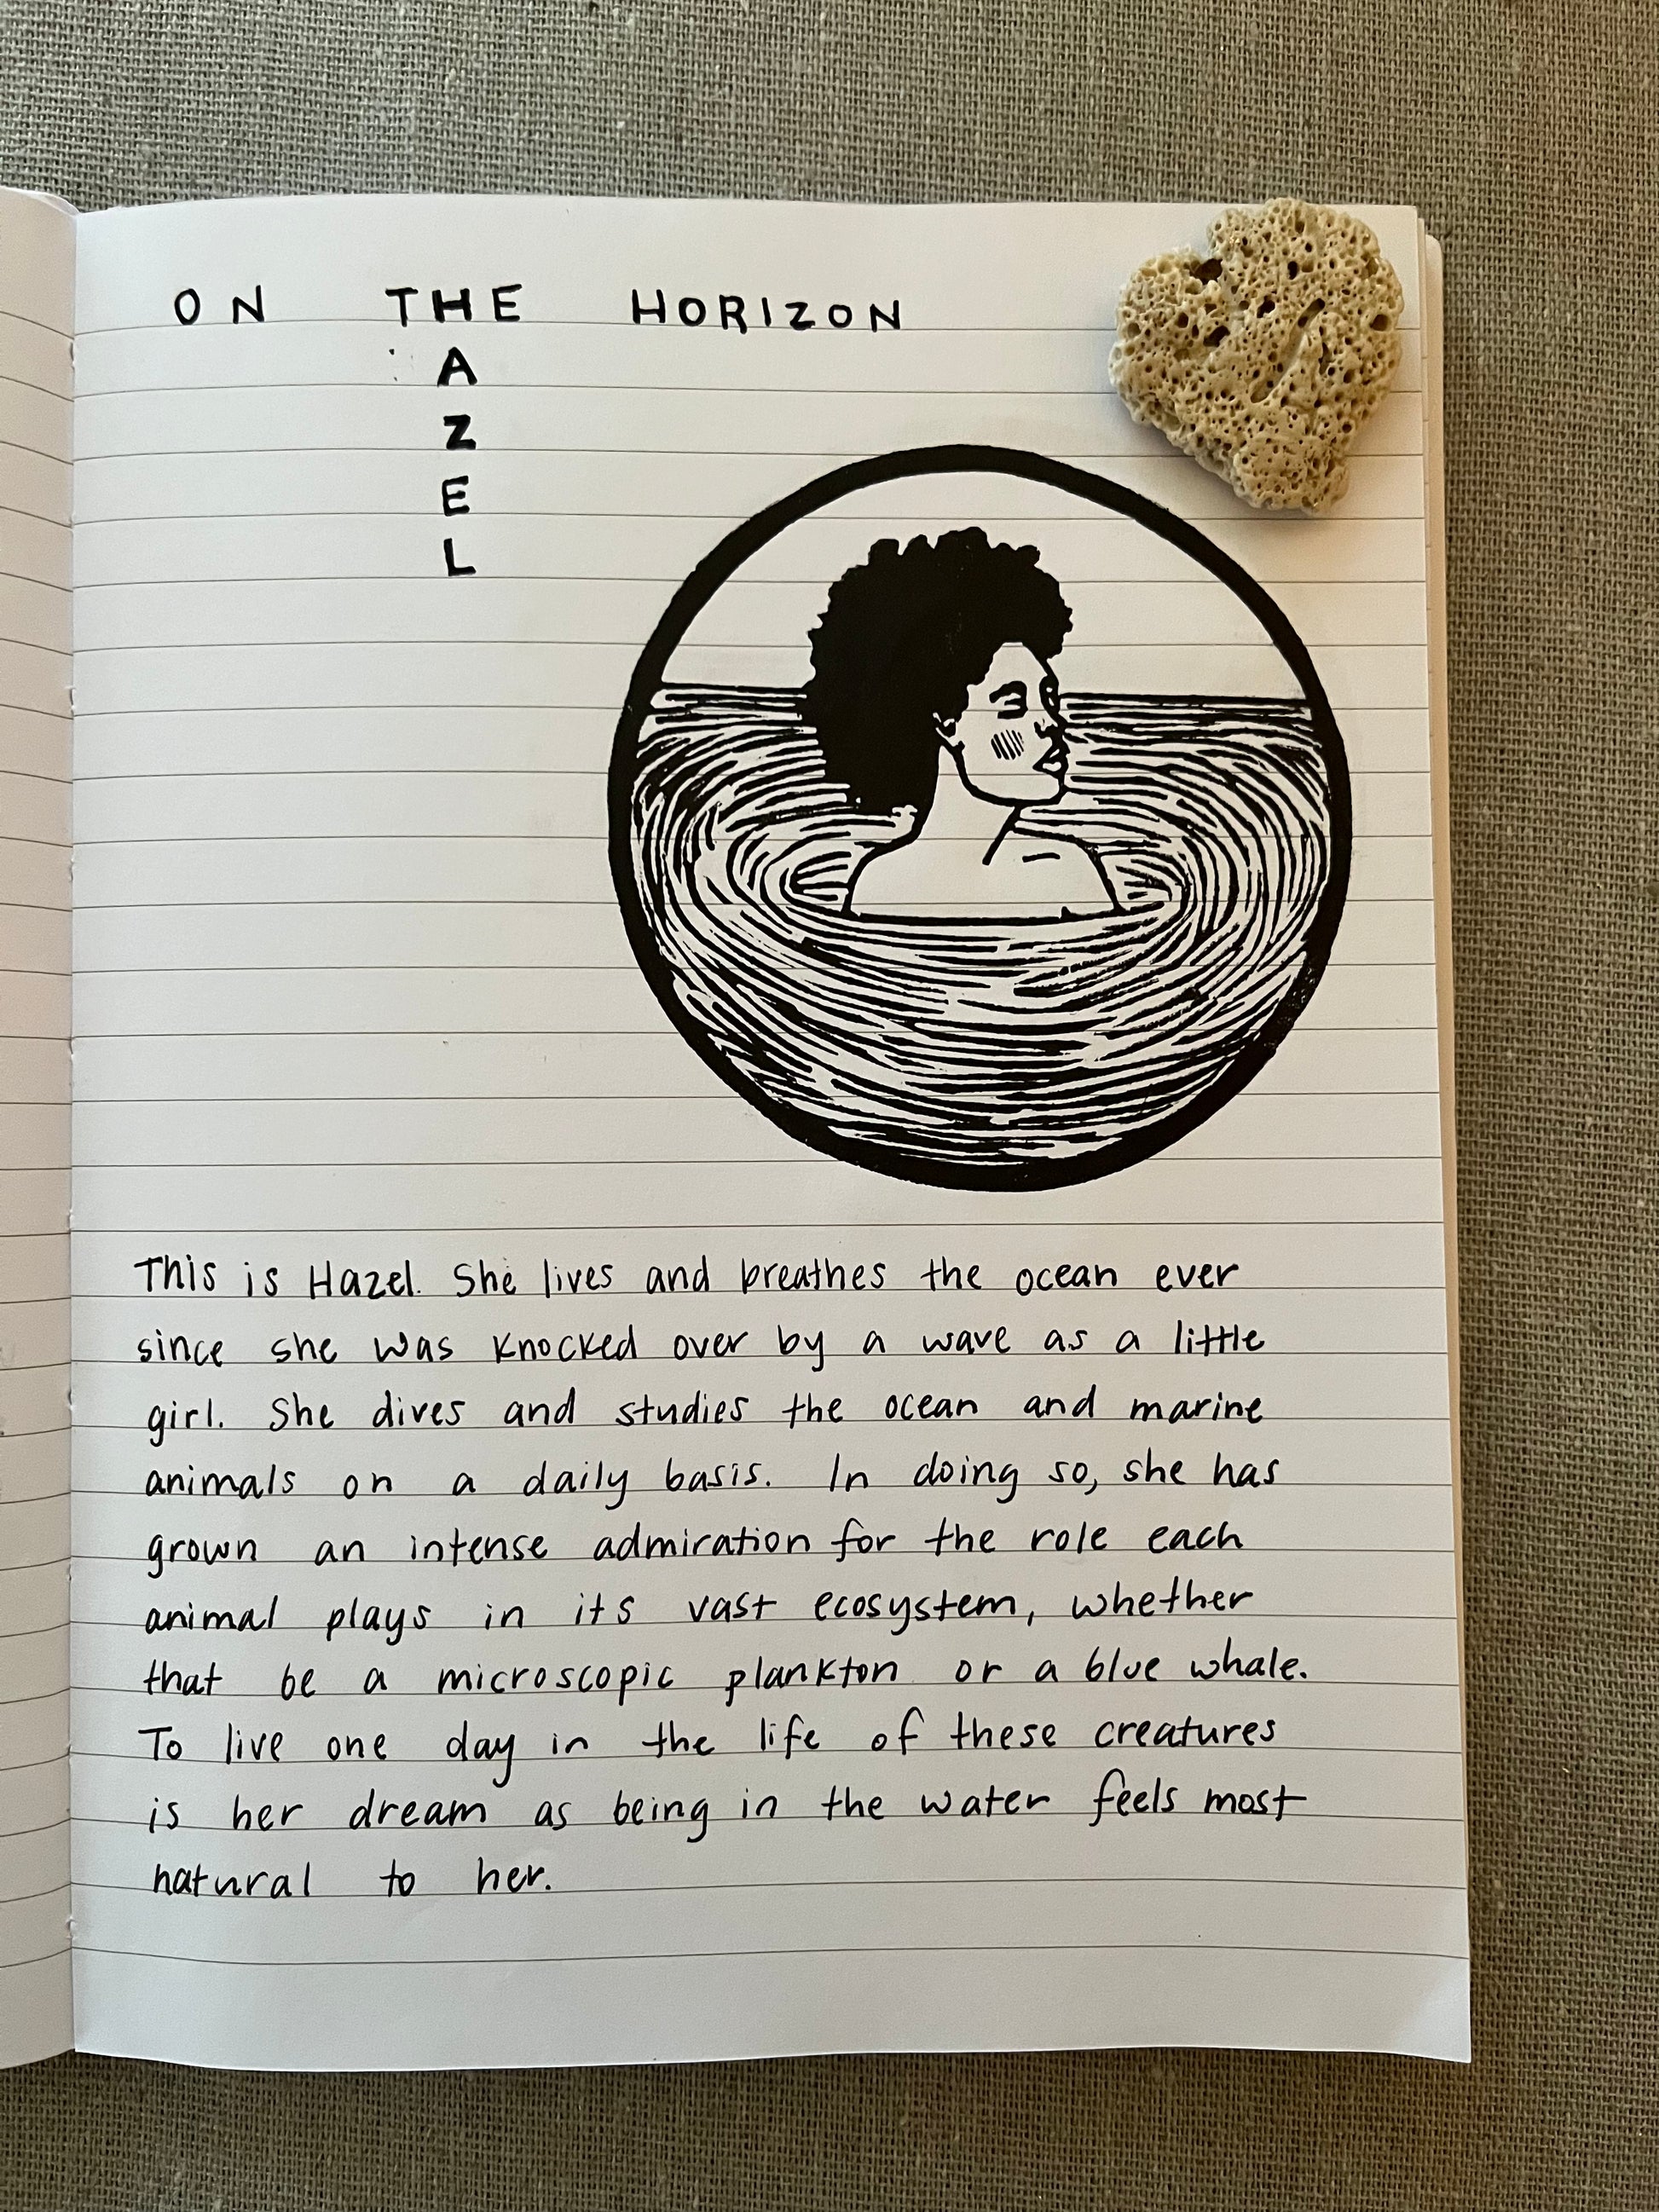 ON THE HORIZON
A
Z
E
L
This is Hazel. She lives and breathes the ocean ever
since she was knocked over by a wave as a little
girl. She dives and studies the ocean and marine
animals on a daily basis. In doing so, she has
grown an intense admiration for the role each
animal plays in its vast ecosystem, whether
that be a microscopic plankton or a blue whale.
To live one day in the life of these creatures
is her dream as being in the water feels most
natural to her.